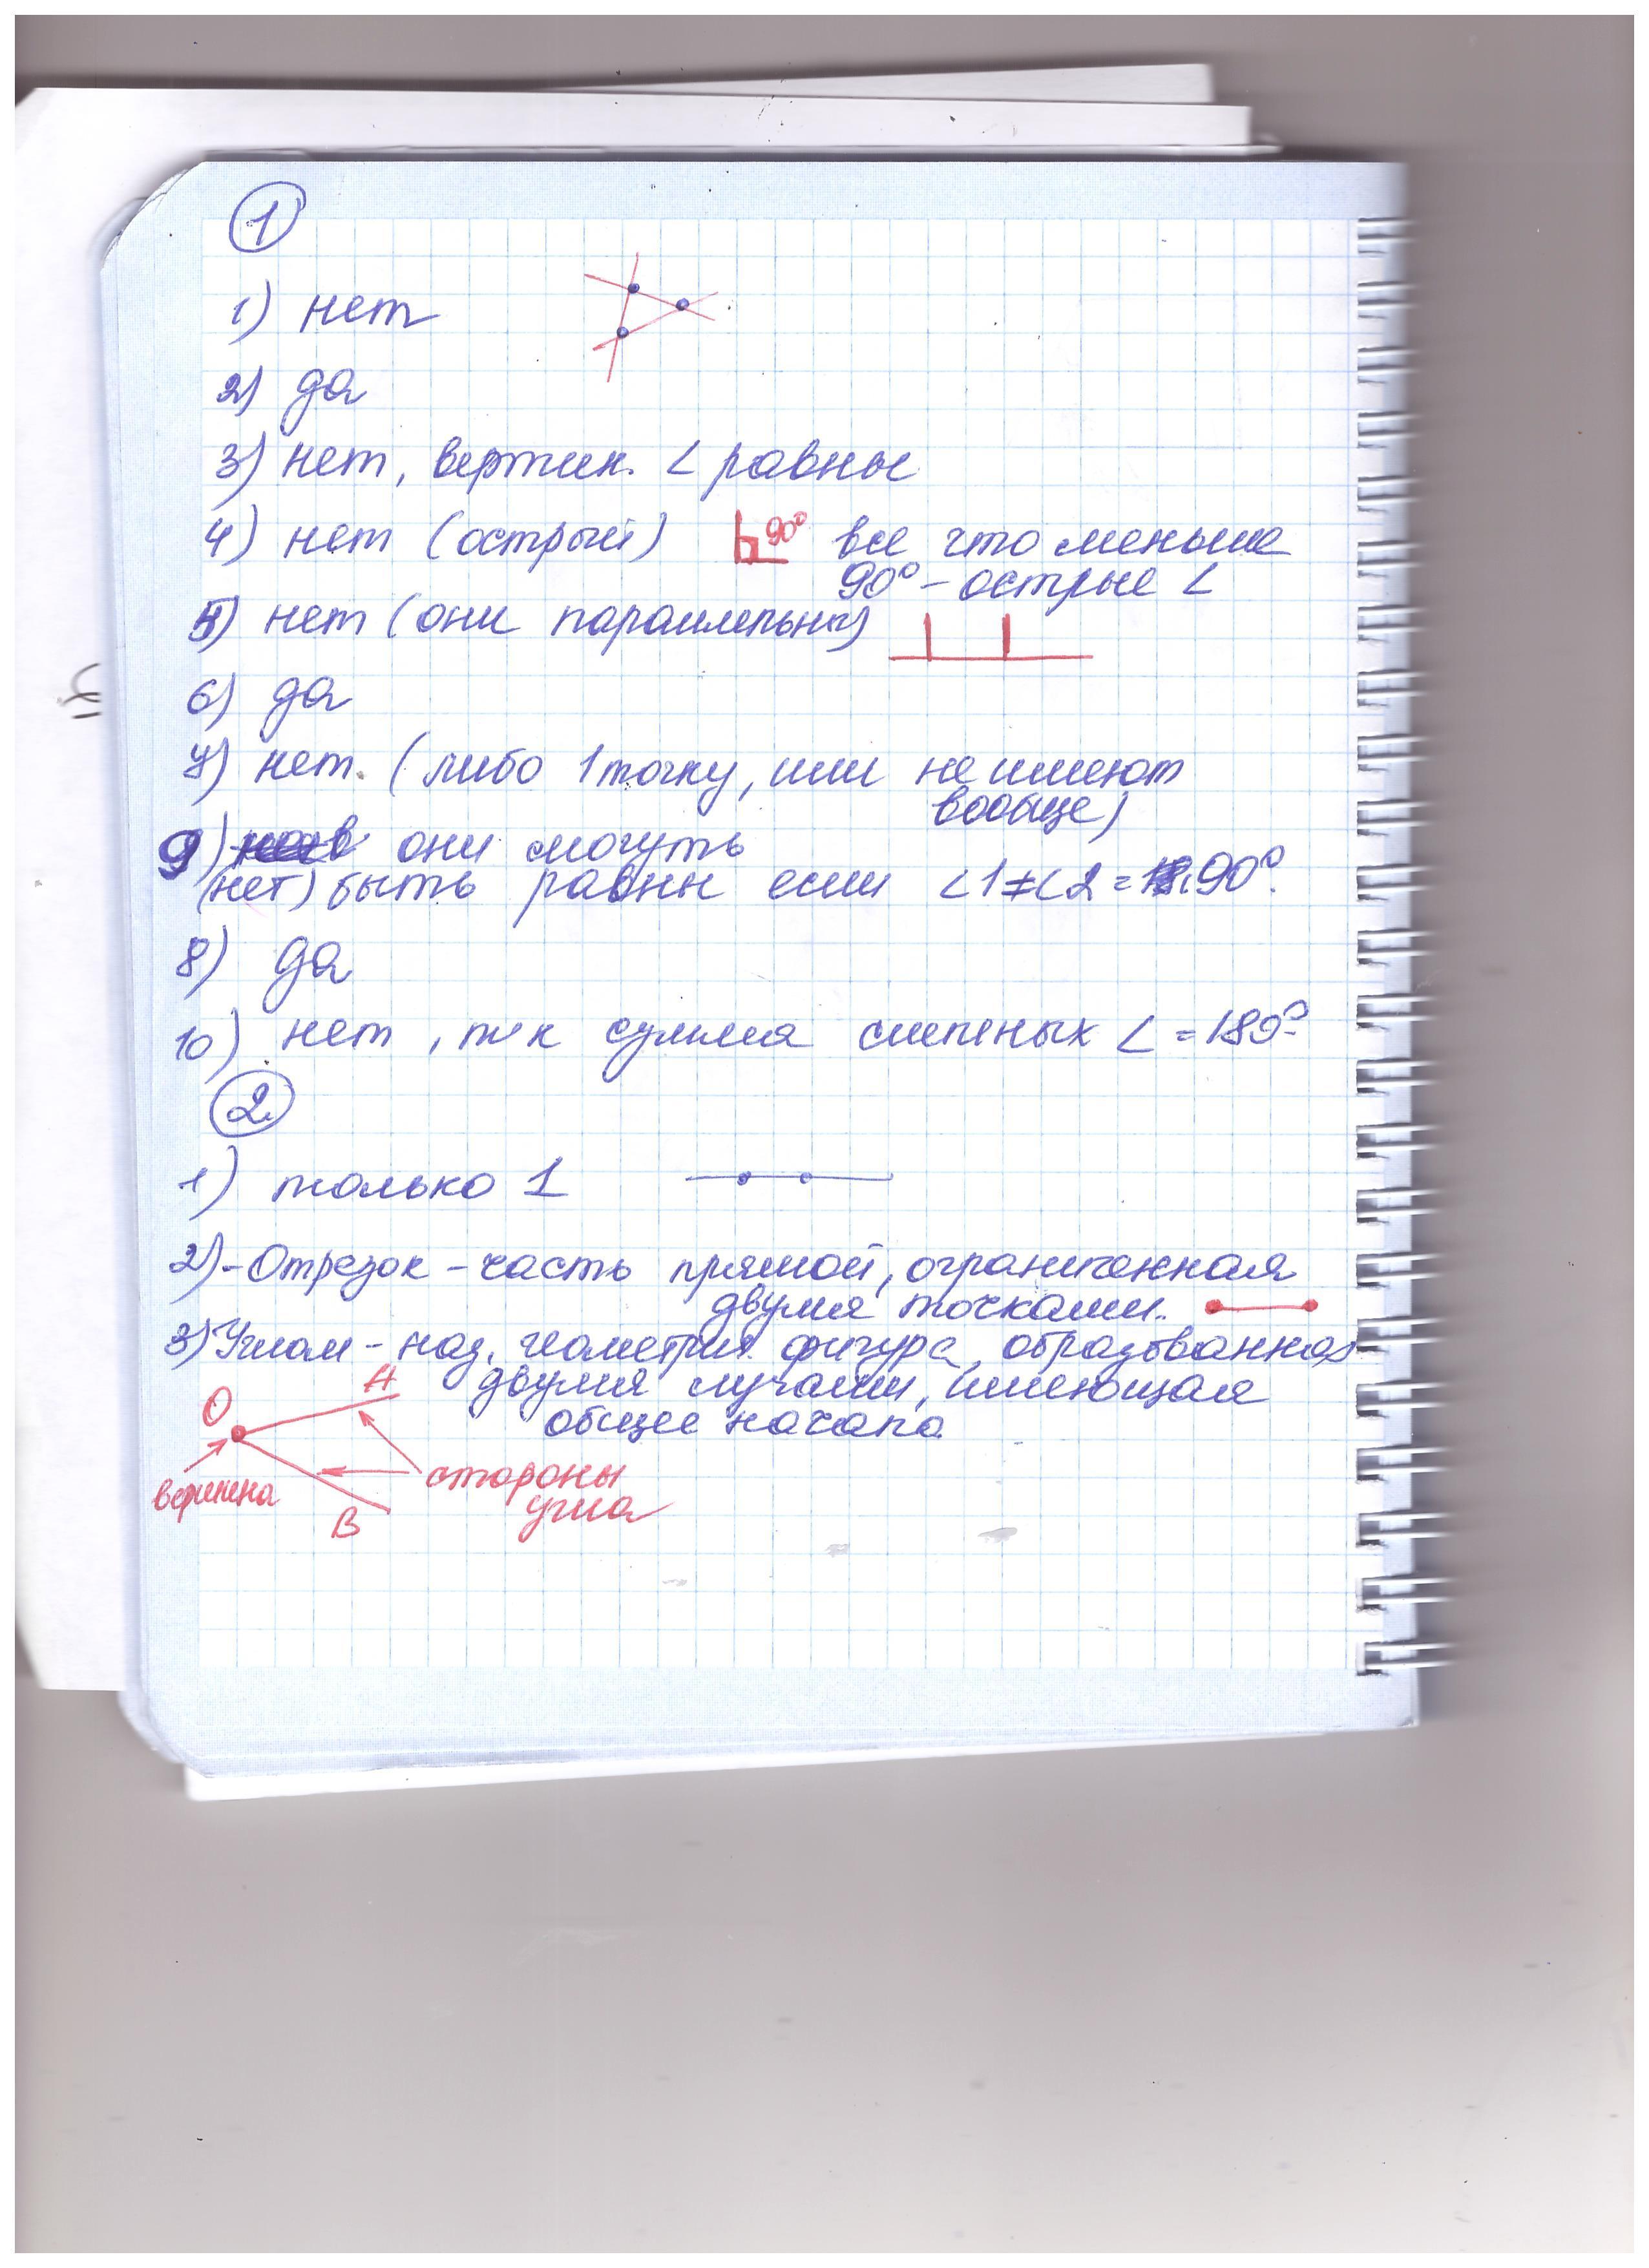 1
1) нет
2) да
3) нет, вертик. < равны
4) нет (острый) 90° все что меньше
90° - острые <
5) нет (они параллельны)
6) да
7) нет. (либо 1 точку, или не имеют
вообще)
9) они могуть
(нет) быть равны если <1 <2 = 90°.
8) да
10) нет, т к сумма смежных < = 180°
2
1) только 1
2) - Отрезок - часть прямой, ограниченная
двумя точками.
3) Углом - наз. геометрич. фигура, образованная
двумя лучами, имеющая
общее начало.
О А
вершина стороны
угла
В